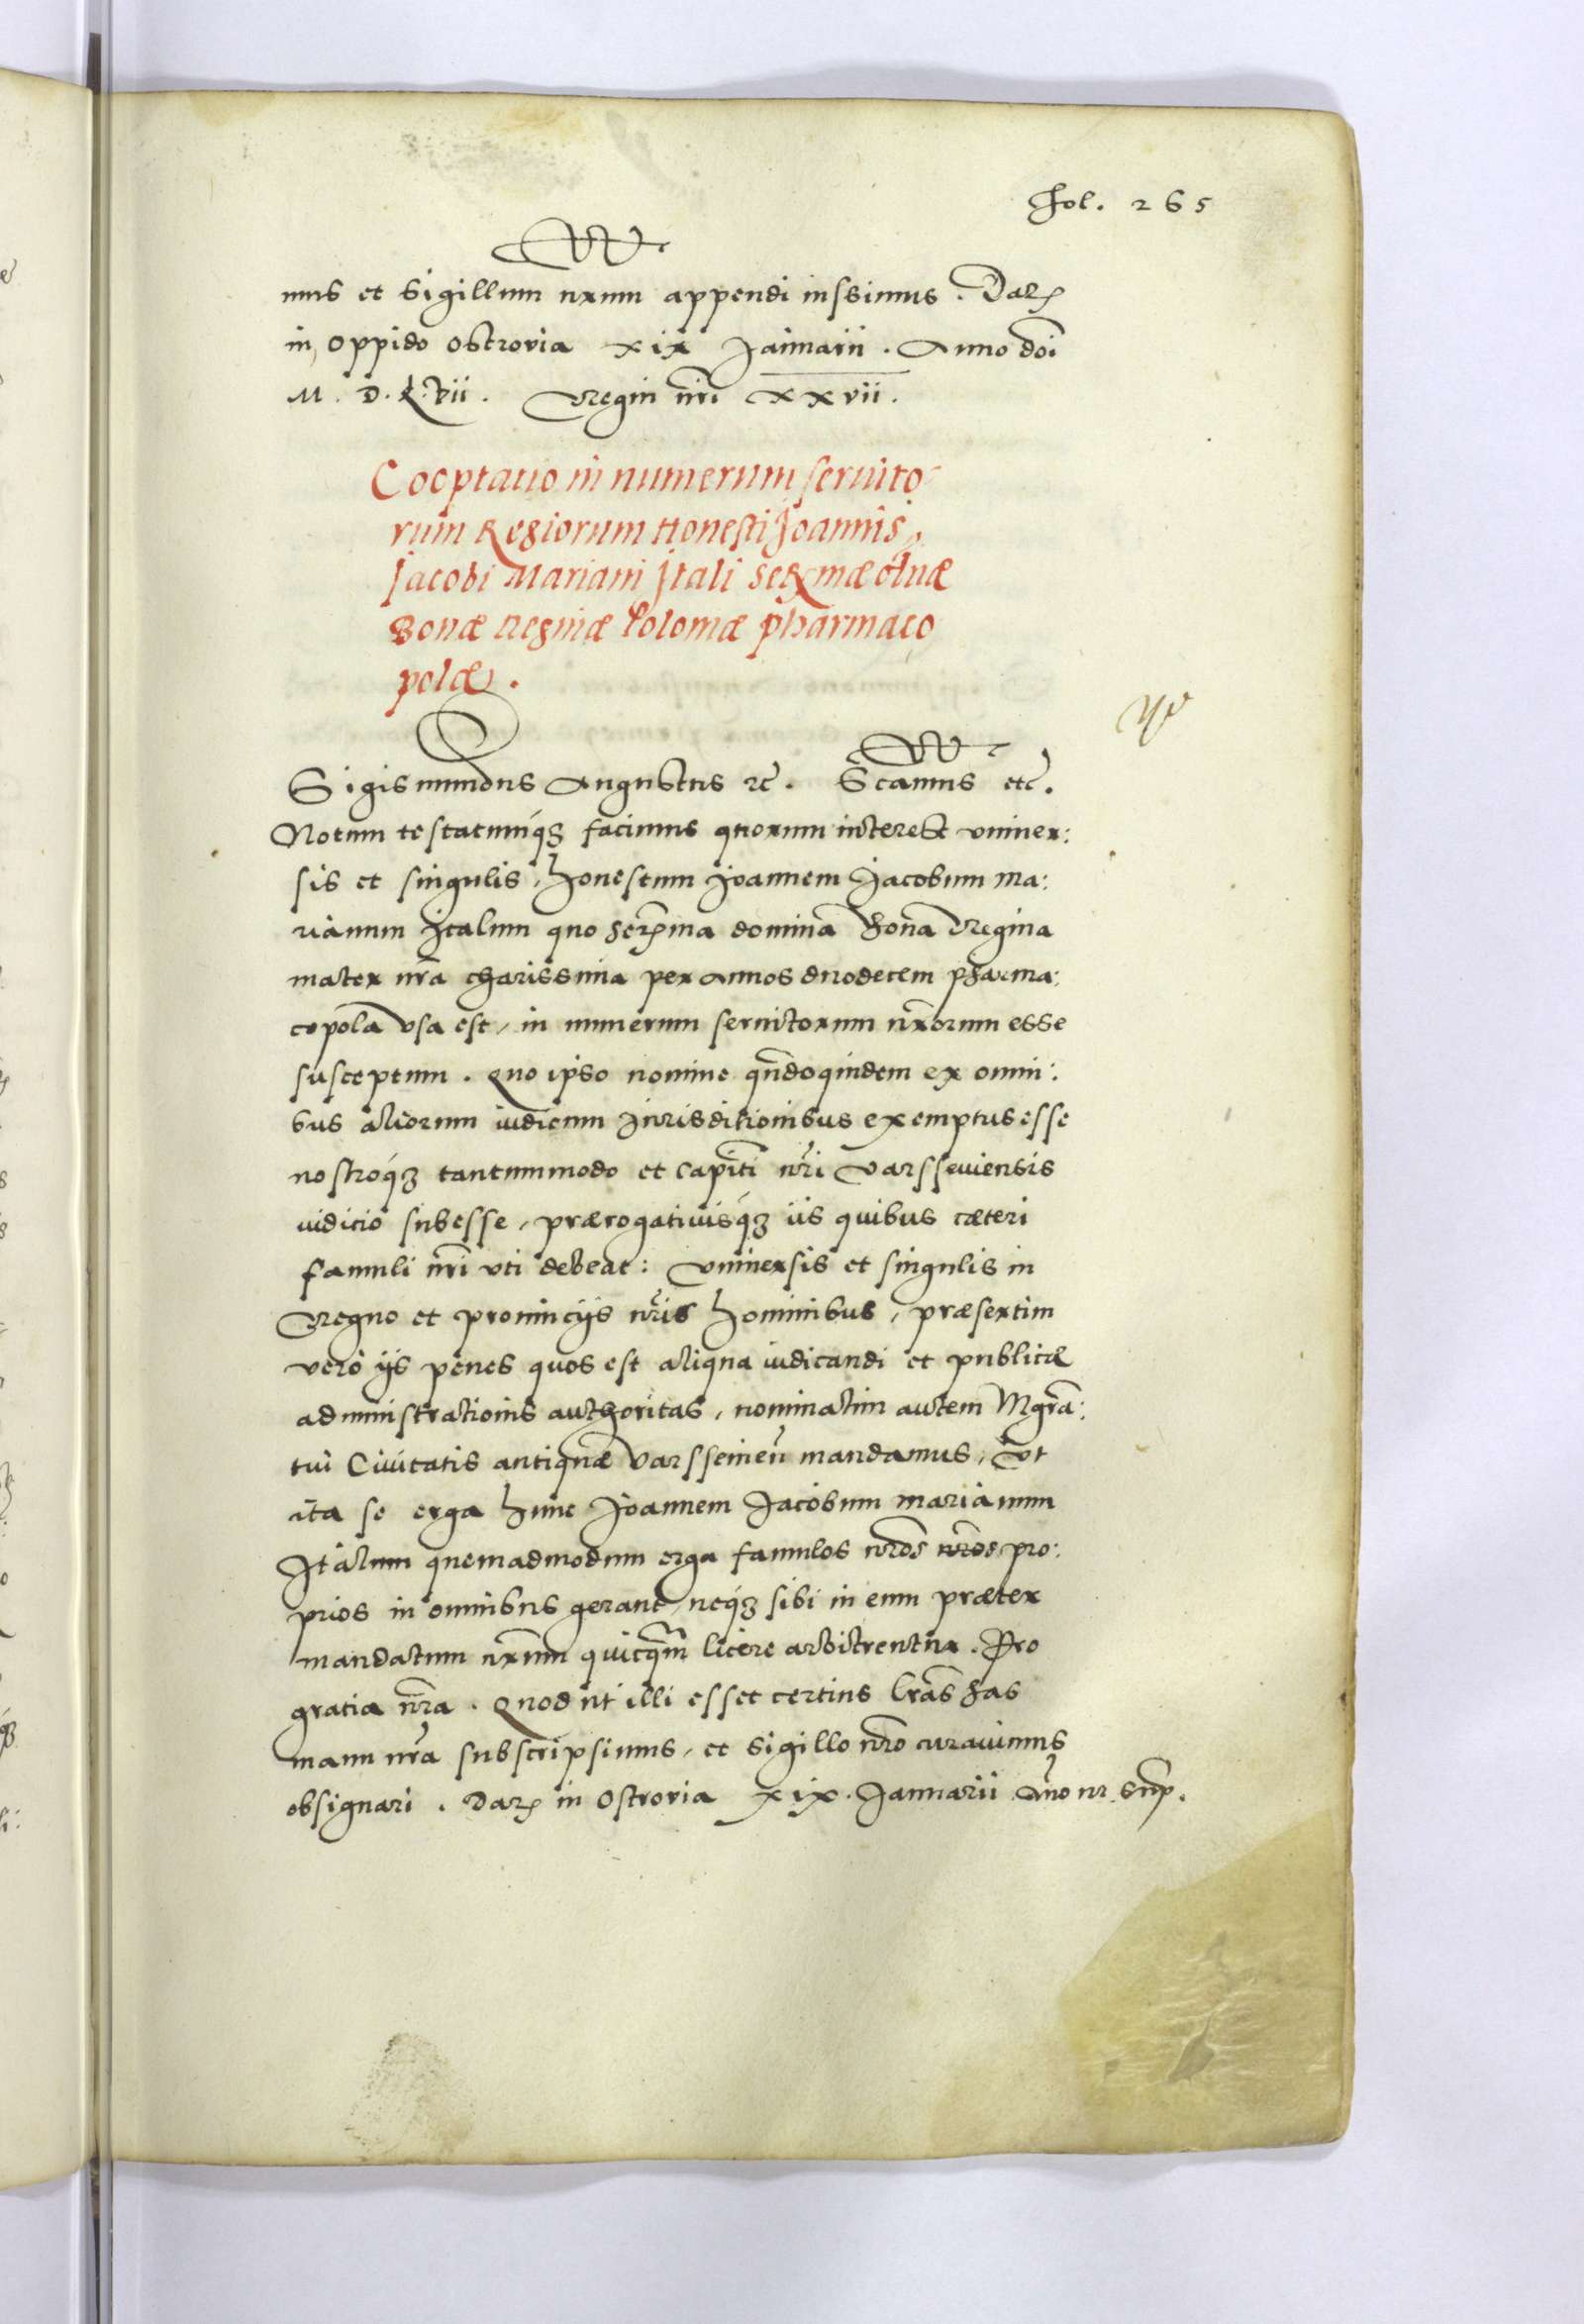 Fol. 265
mus et Sigillum nrum appendi iussimus. Datꝭ
in oppido Ostrovia xix Januarii. Anno doi
M. D. L. vii. Regni nri xxvii.
Cooptatio in numerum seruito
rum Regiorum Honesti Joannis
Jacobi Mariani Itali Serꝭmæ olim
Bonæ Reginæ Poloniæ pharmaco
polæ.
Sigismundus Augustus etc. Scamus etc.
Notum testatumq3 facimus quorum interest vniuer:
sis et singulis, honestum Joannem Jacobum Ma:
rianum Italum quo Serꝭma domina Bona Regina
mater nra charissima per annos duodecem pharma:
copola vsa est, in numerum seruitorum nrorum esse
susceptum. Quo ipso nomine qndoquidem ex omni:
bus aliorum iudicum Jurisditionibus exemptus esse
nostroq3 tantummodo et Capiti nri Varsseuiensis
iudicio subesse, prærogatiuisq3 iis quibus cæteri
famuli nri vti debeat: Vniuersis et singulis in
Regno et prouinciis nris hominibus, præsertim
vero iis penes quos est aliqua iudicandi et publicæ
administrationis authoritas, nominatim autem Mgra:
tui Ciuitatis antiquæ Varsseuien mandamus, Vt
ita se erga hunc Joannem Jacobum Marianum
Italum quemadmodum erga famulos nros nros pro:
prios in omnibus gerant, neq3 sibi in eum præter
mandatum nrum quicqm licere arbitrentur. Pro
gratia nra. Quod ut illi esset certius lras has
manu nra subscripsimus, et Sigillo nro curauimus
obsignari. Datꝭ in Ostrovia xix. Januarii Ano ut sup.